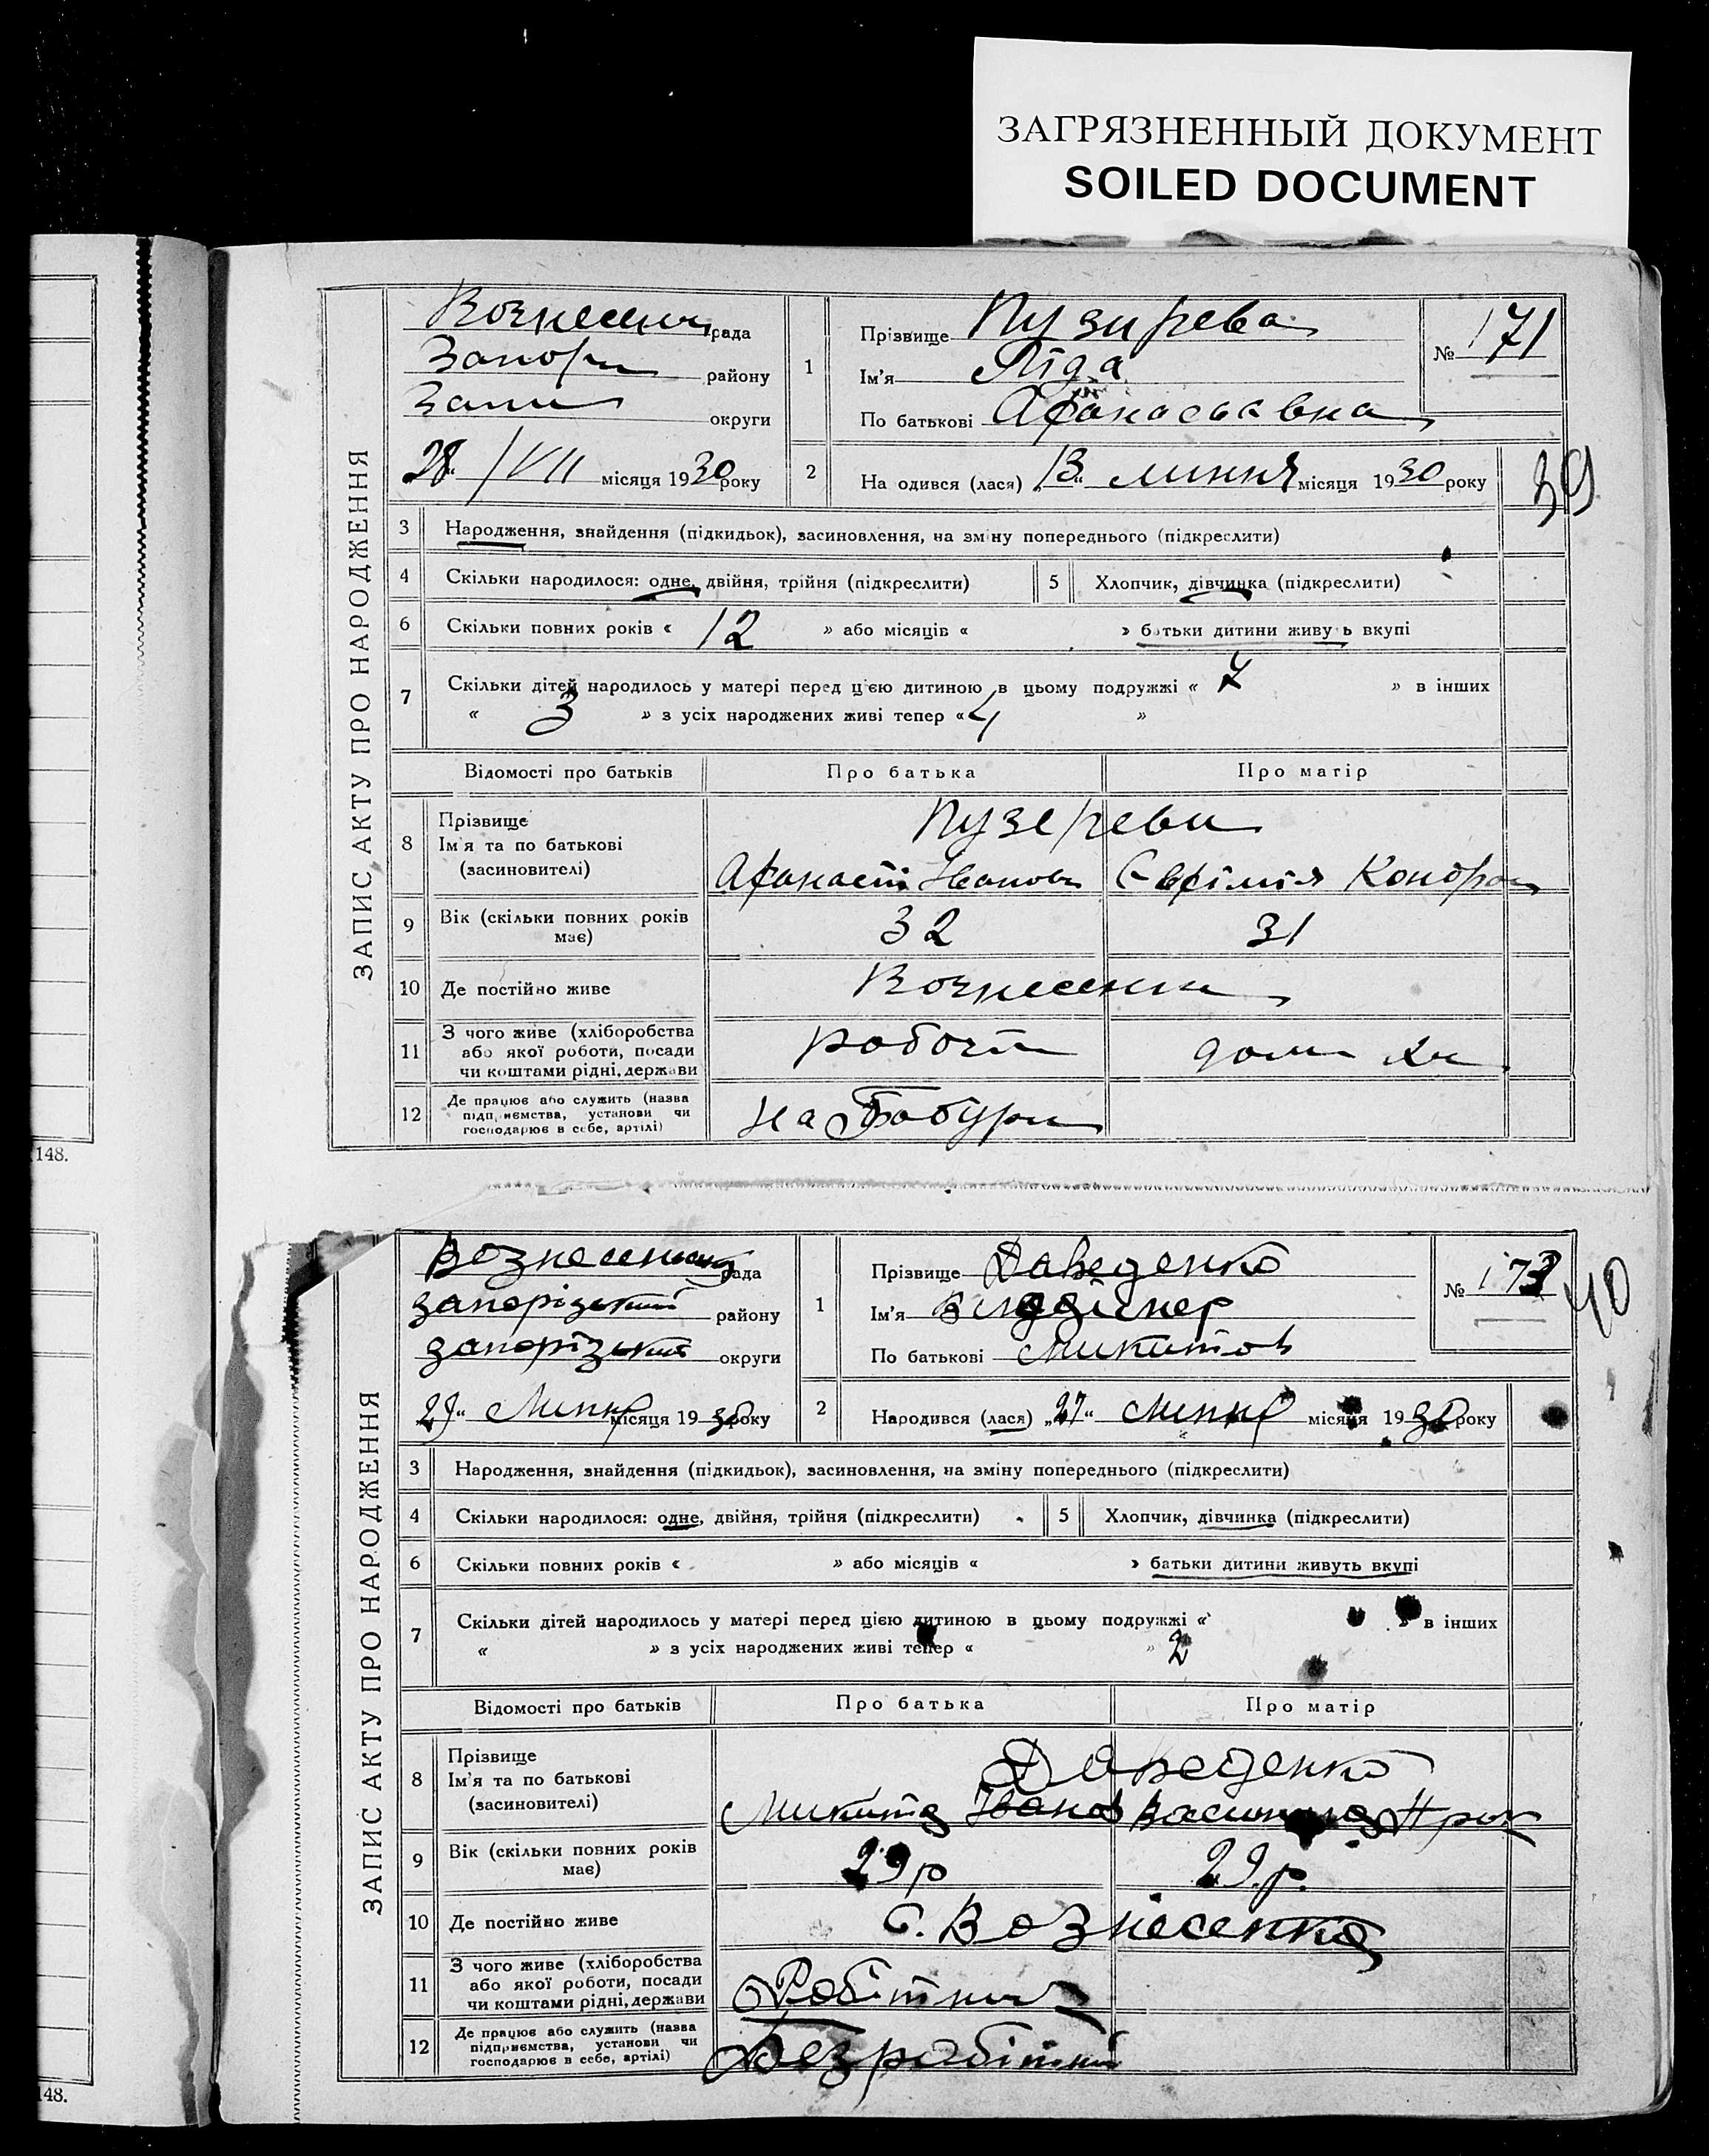 ЗАГРЯЗНЕННЫЙ ДОКУМЕНТ
SOILED DOCUMENT
148.
148.
ЗАПИС АКТУ ПРО НАРОДЖЕННЯ
рада
району
округи
28 /VII місяця 1930 року
1
Прізвище Пузирева
Ім'я Ліда
По батькові
№ 171
2
На одився (лася) „13“ липня місяця 1930 року
39
3 Народження, знайдення (підкидьок), засиновлення, на зміну попереднього (підкреслити)
4 Скільки народилося: одне, двійня, трійня (підкреслити) 5 Хлопчик, дівчинка (підкреслити)
6 Скільки повних років « 12 » або місяців « » батьки дитини живу ь вкупі
7 Скільки дітей народилось у матері перед цією дитиною в цьому подружжі « 7 » в інших
« 3 » з усіх народжених живі тепер « 4 »
Відомості про батьків Про батька Про матір
8 Прізвище
Ім'я та по батькові
(засиновителі)
9 Вік (скільки повних років має) 32 31
10 Де постійно живе
11 З чого живе (хліборобства
або якої роботи, посади
чи коштами рідні, держави
12 Де працює або служить (назва
підприємства, установи чи
господарює в себе, артілі)
ЗАПИС АКТУ ПРО НАРОДЖЕННЯ
рада
запорізький району
запорізький округи
29“ Липня місяця 1930 року
1
Прізвище Даведенко
Ім'я
По батькові Микитов
№
40
2
Народився (лася) „27“ Липня місяця 1930 року
3 Народження, знайдення (підкидьок), засиновлення, на зміну попереднього (підкреслити)
4 Скільки народилося: одне, двійня, трійня (підкреслити) 5 Хлопчик, дівчинка (підкреслити)
6 Скільки повних років « » або місяців « » батьки дитини живуть вкупі
7 Скільки дітей народилось у матері перед цією дитиною в цьому подружжі « » в інших
« » з усіх народжених живі тепер « » 2
Відомості про батьків Про батька Про матір
8 Прізвище Даведенко
Ім'я та по батькові Микита Іванов
(засиновителі)
9 Вік (скільки повних років має) 29 р 29. р.
10 Де постійно живе с. Вознесенка
11 З чого живе (хліборобства
або якої роботи, посади Робітник
чи коштами рідні, держави
12 Де працює або служить (назва
підприємства, установи чи
господарює в себе, артілі)